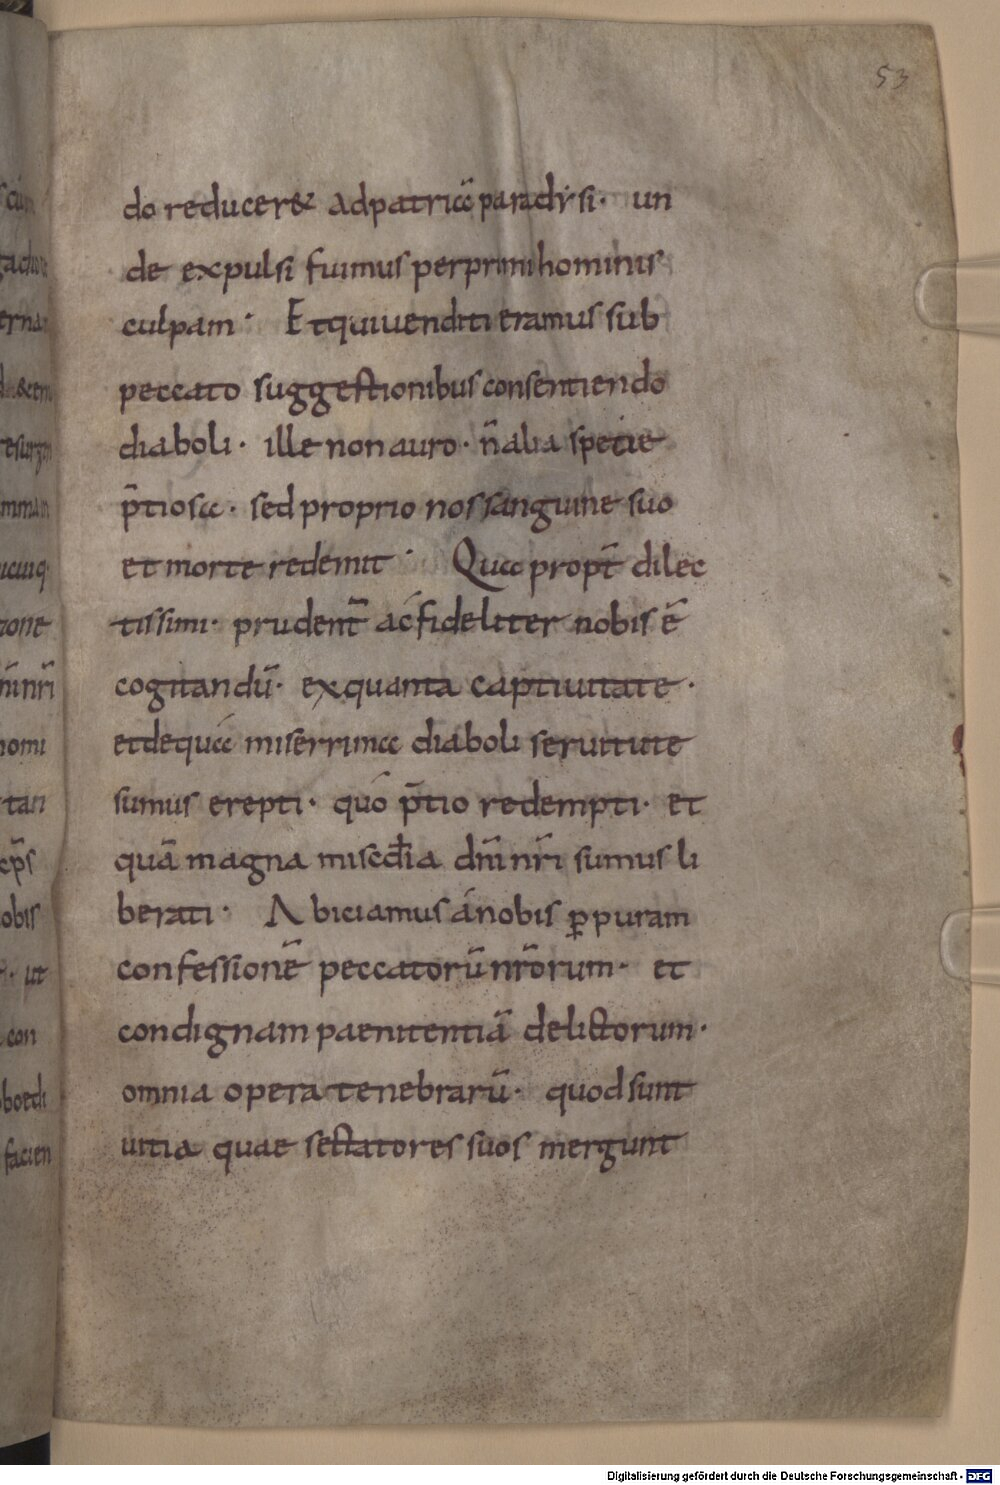 53
do reducer& ad patria paradysi· un
de expulsi fuimus per primi hominis
culpam· Et qui uenditi eramus sub
peccato suggestionibus consentiendo
diaboli· ille non auro· n̄ alia spetie
p̄tiosa· sed proprio nos sanguine suo
et morte redemit· Qua propt̄ dilec
tissimi· prudent̄ ac fideliter nobis ē
cogitandū· ex quanta captiuitate·
et de qua miserrima diaboli seruitute
sumus erepti· quo p̄tio redempti· et
quā magna misecđia dn̄i nr̄i sumus li
berati· Abiciamus a nobis ꝑ puram
confessionē peccatorū nr̄orum· et
condignam paenitentiā delictorum·
omnia opera tenebrarū· quod sunt
uitia quae sectatores suos mergunt
Digitalisierung gefördert durch die Deutsche Forschungsgemeinschaft - DFG